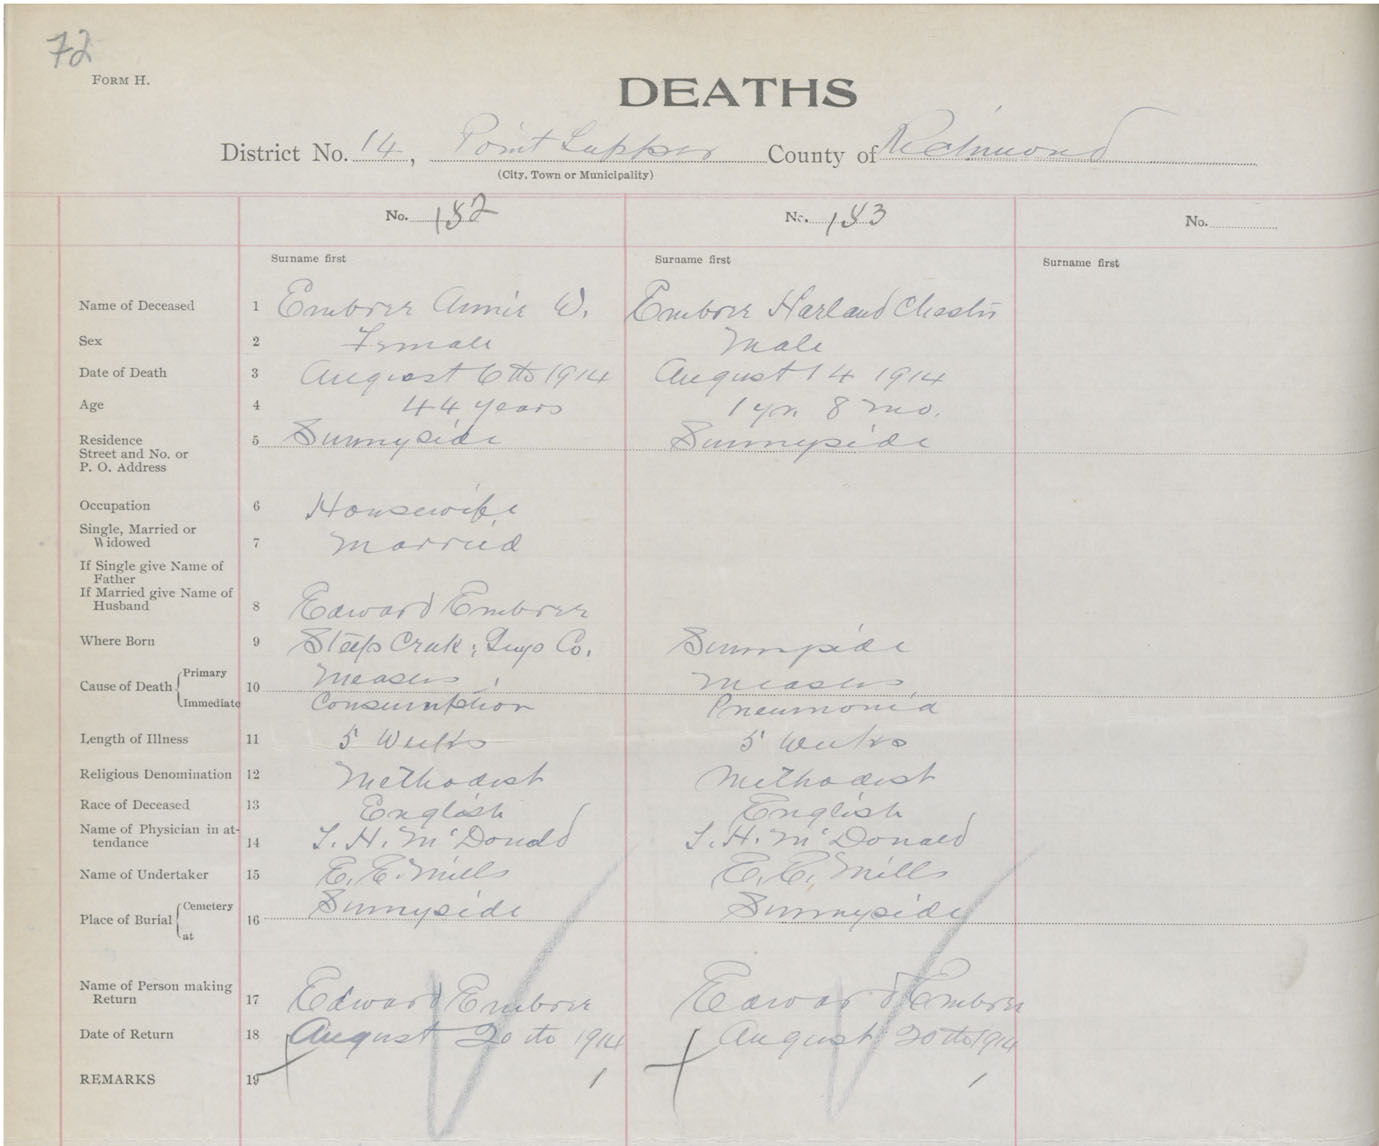 72
FORM H.
DEATHS
District No. 14, Point Tupper County of Richmond
(City, Town or Municipality)
No. 182 No. 183 No.
Surname first Surname first Surname first
Name of Deceased 1 Embree Annie W. Embree Harland Chester
Sex 2 Female Male
Date of Death 3 August 6th 1914 August 14 1914
Age 4 44 years 1 yr. 8 mo.
Residence 5 Sunnyside Sunnyside
Street and No. or
P. O. Address
Occupation 6 Housewife
Single, Married or
Widowed 7 Married
If Single give Name of
Father
If Married give Name of
Husband 8 Edward Embree
Where Born 9 Steep Creek, Guys Co. Sunnyside
Cause of Death Primary 10 Measles Measles
Immediate Consumption Pneumonia
Length of Illness 11 5 Weeks 5 Weeks
Religious Denomination 12 Methodist Methodist
Race of Deceased 13 English English
Name of Physician in at-
tendance 14 H. McDonald H. McDonald
Name of Undertaker 15 E. E. Mills E. E. Mills
Place of Burial Cemetery 16 Sunnyside Sunnyside
at
Name of Person making
Return 17 Edward Embree Edward Embree
Date of Return 18 August 20th 1914 August 20th 1914
REMARKS 19 1 1